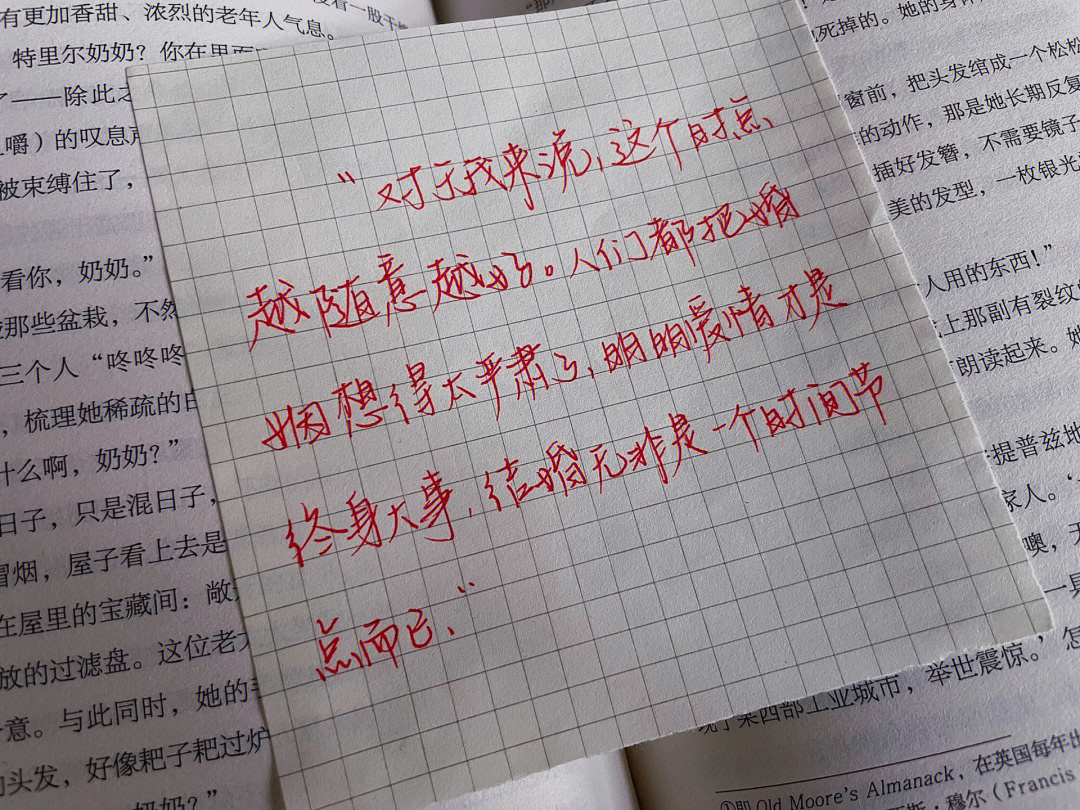 有更加香甜、浓烈的老年人气息。
特里尔奶奶？你在里面
了——除此之
嚼）的叹息声
被束缚住了，
看你，奶奶。”
那些盆栽，不然
三个人“咚咚咚
，梳理她稀疏的白
什么啊，奶奶？”
日子，只是混日子，
冒烟，屋子看上去是
在屋里的宝藏间：敞
放的过滤盘。这位老太
意。与此同时，她的手
的头发，好像耙子耙过炉
奶奶？”
“对于我来说，这个时点
越随意越好。人们都把婚
姻想得太严肃了，明明爱情才是
终身大事，结婚无非是一个时间节
点而已。”
死掉的。她的身体
窗前，把头发绾成一个松松
的动作，那是她长期反复
插好发簪，不需要镜子
美的发型，一枚银光
人用的东西！”
上那副有裂纹的
朗读起来。她
提普兹地
家人。‘
噢，天
一具
现了某西部工业城市，举世震惊。’怎
①即 Old Moore's Almanack，在英国每年出
穆尔（Francis